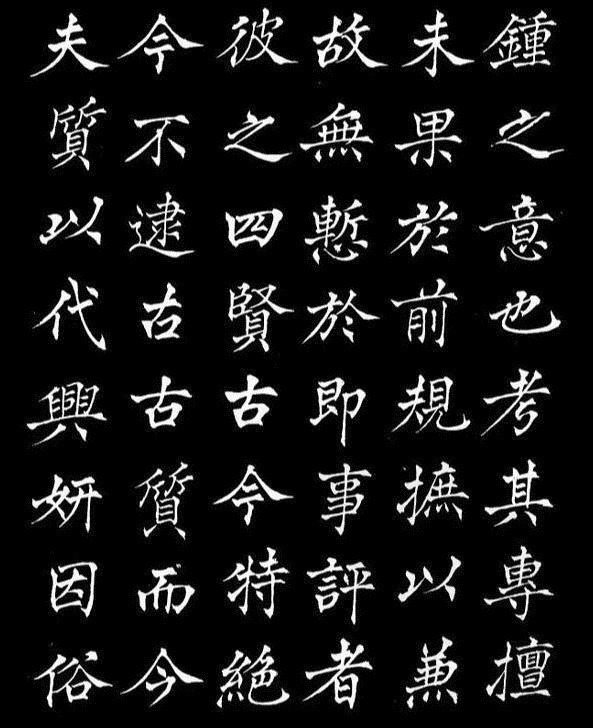 鍾之意也考其專擅
未果於前規摭以兼
故無慙於即事評者
彼之四賢古今特絕
今不逮古古質而今
夫質以代興妍因俗